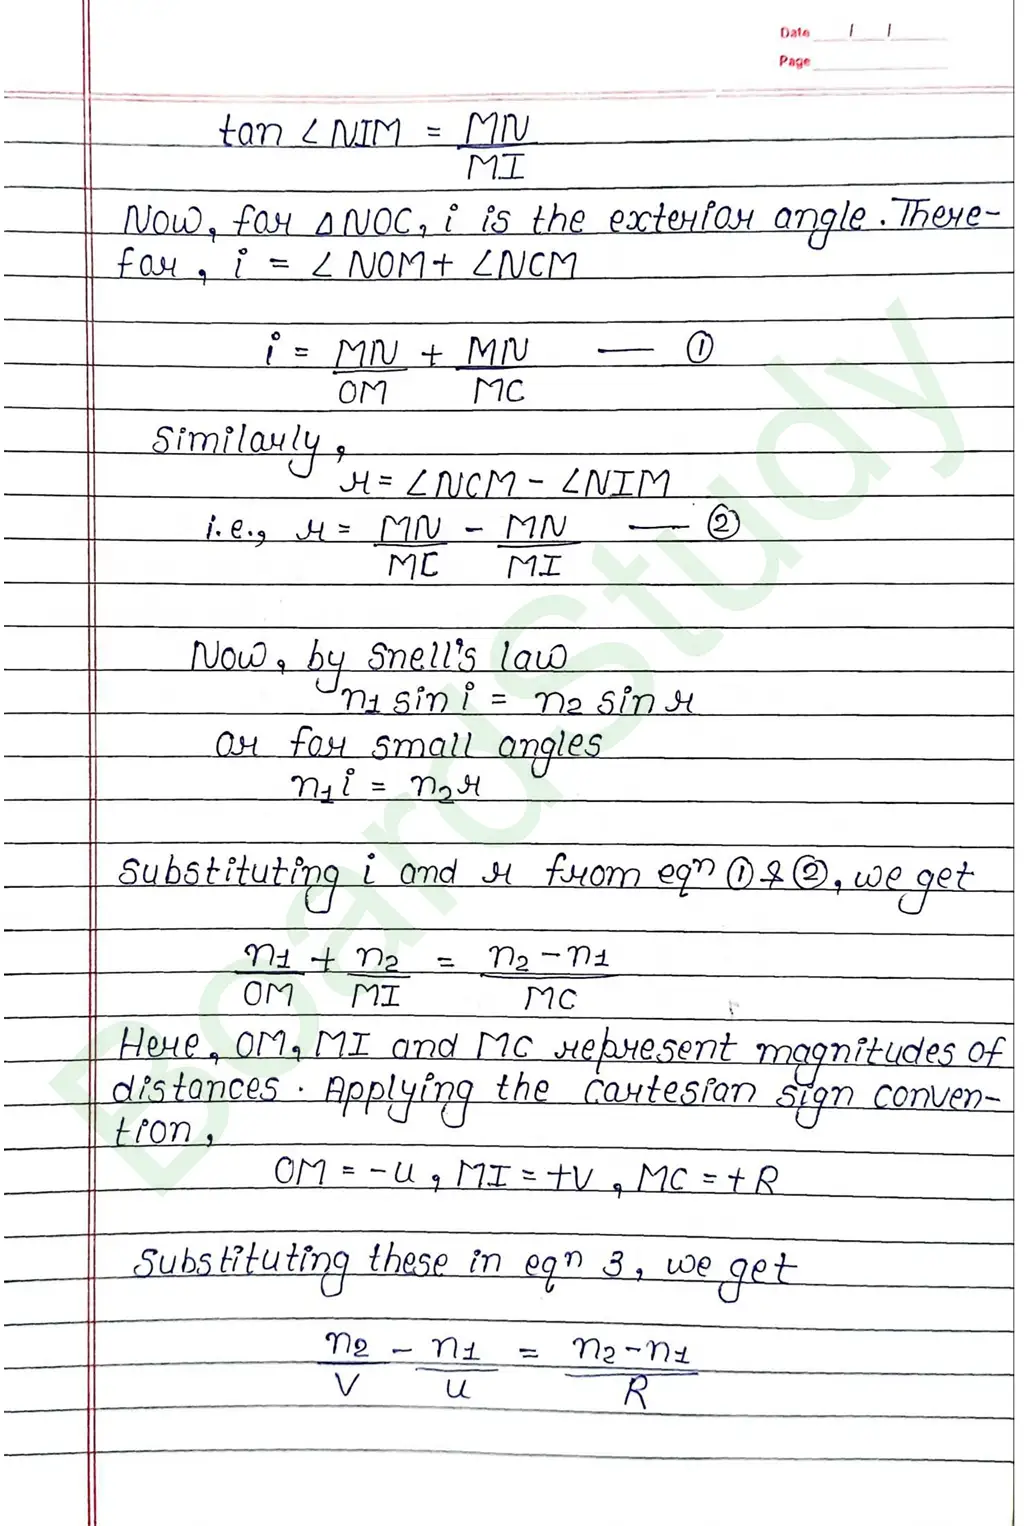 Date / /
Page
tan ∠NIM = MN/MI
Now, for △NOC, i is the exterior angle. There-
for, i = ∠NOM + ∠NCM
i = MN/OM + MN/MC — ①
Similarly,
r = ∠NCM - ∠NIM
i.e., r = MN/MC - MN/MI — ②
Now, by Snell's law
n1 sin i = n2 sin r
or for small angles
n1 i = n2 r
Substituting i and r from eqn ① & ②, we get
n1/OM + n2/MI = n2 - n1/MC
Here, OM, MI and MC represent magnitudes of
distances. Applying the Cartesian sign conven-
tion,
OM = -u, MI = +v, MC = +R
Substituting these in eqn 3, we get
n2/v - n1/u = n2 - n1/R
BoardStudy